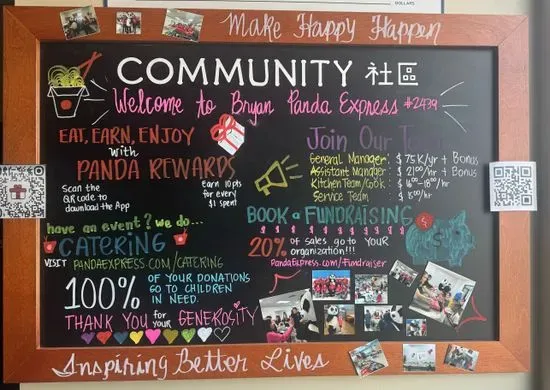 DOLLARS
Make Happy Happen
COMMUNITY 社區
Welcome to Bryan Panda Express #2439
EAT, EARN, ENJOY
with
PANDA REWARDS
Scan the
QR code to
download the App
Earn 10pts
for every
$1 spent
Join Our Team
General Manager: $75K/yr + Bonus
Assistant Manager: $21⁰⁰/hr + Bonus
Kitchen Team/Cook: $16⁰⁰-18⁰⁰/hr
Service Team $15⁰⁰/hr
have an event? we do...
CATERING
VISIT PANDAEXPRESS.COM/CATERING
BOOK a FUNDRAISING
20% of sales go to YOUR
organization!!!
PandaExpress.com/Fundraiser
100% OF YOUR DONATIONS
GO TO CHILDREN
IN NEED.
THANK YOU for YOUR GENEROSITY
Inspiring Better Lives